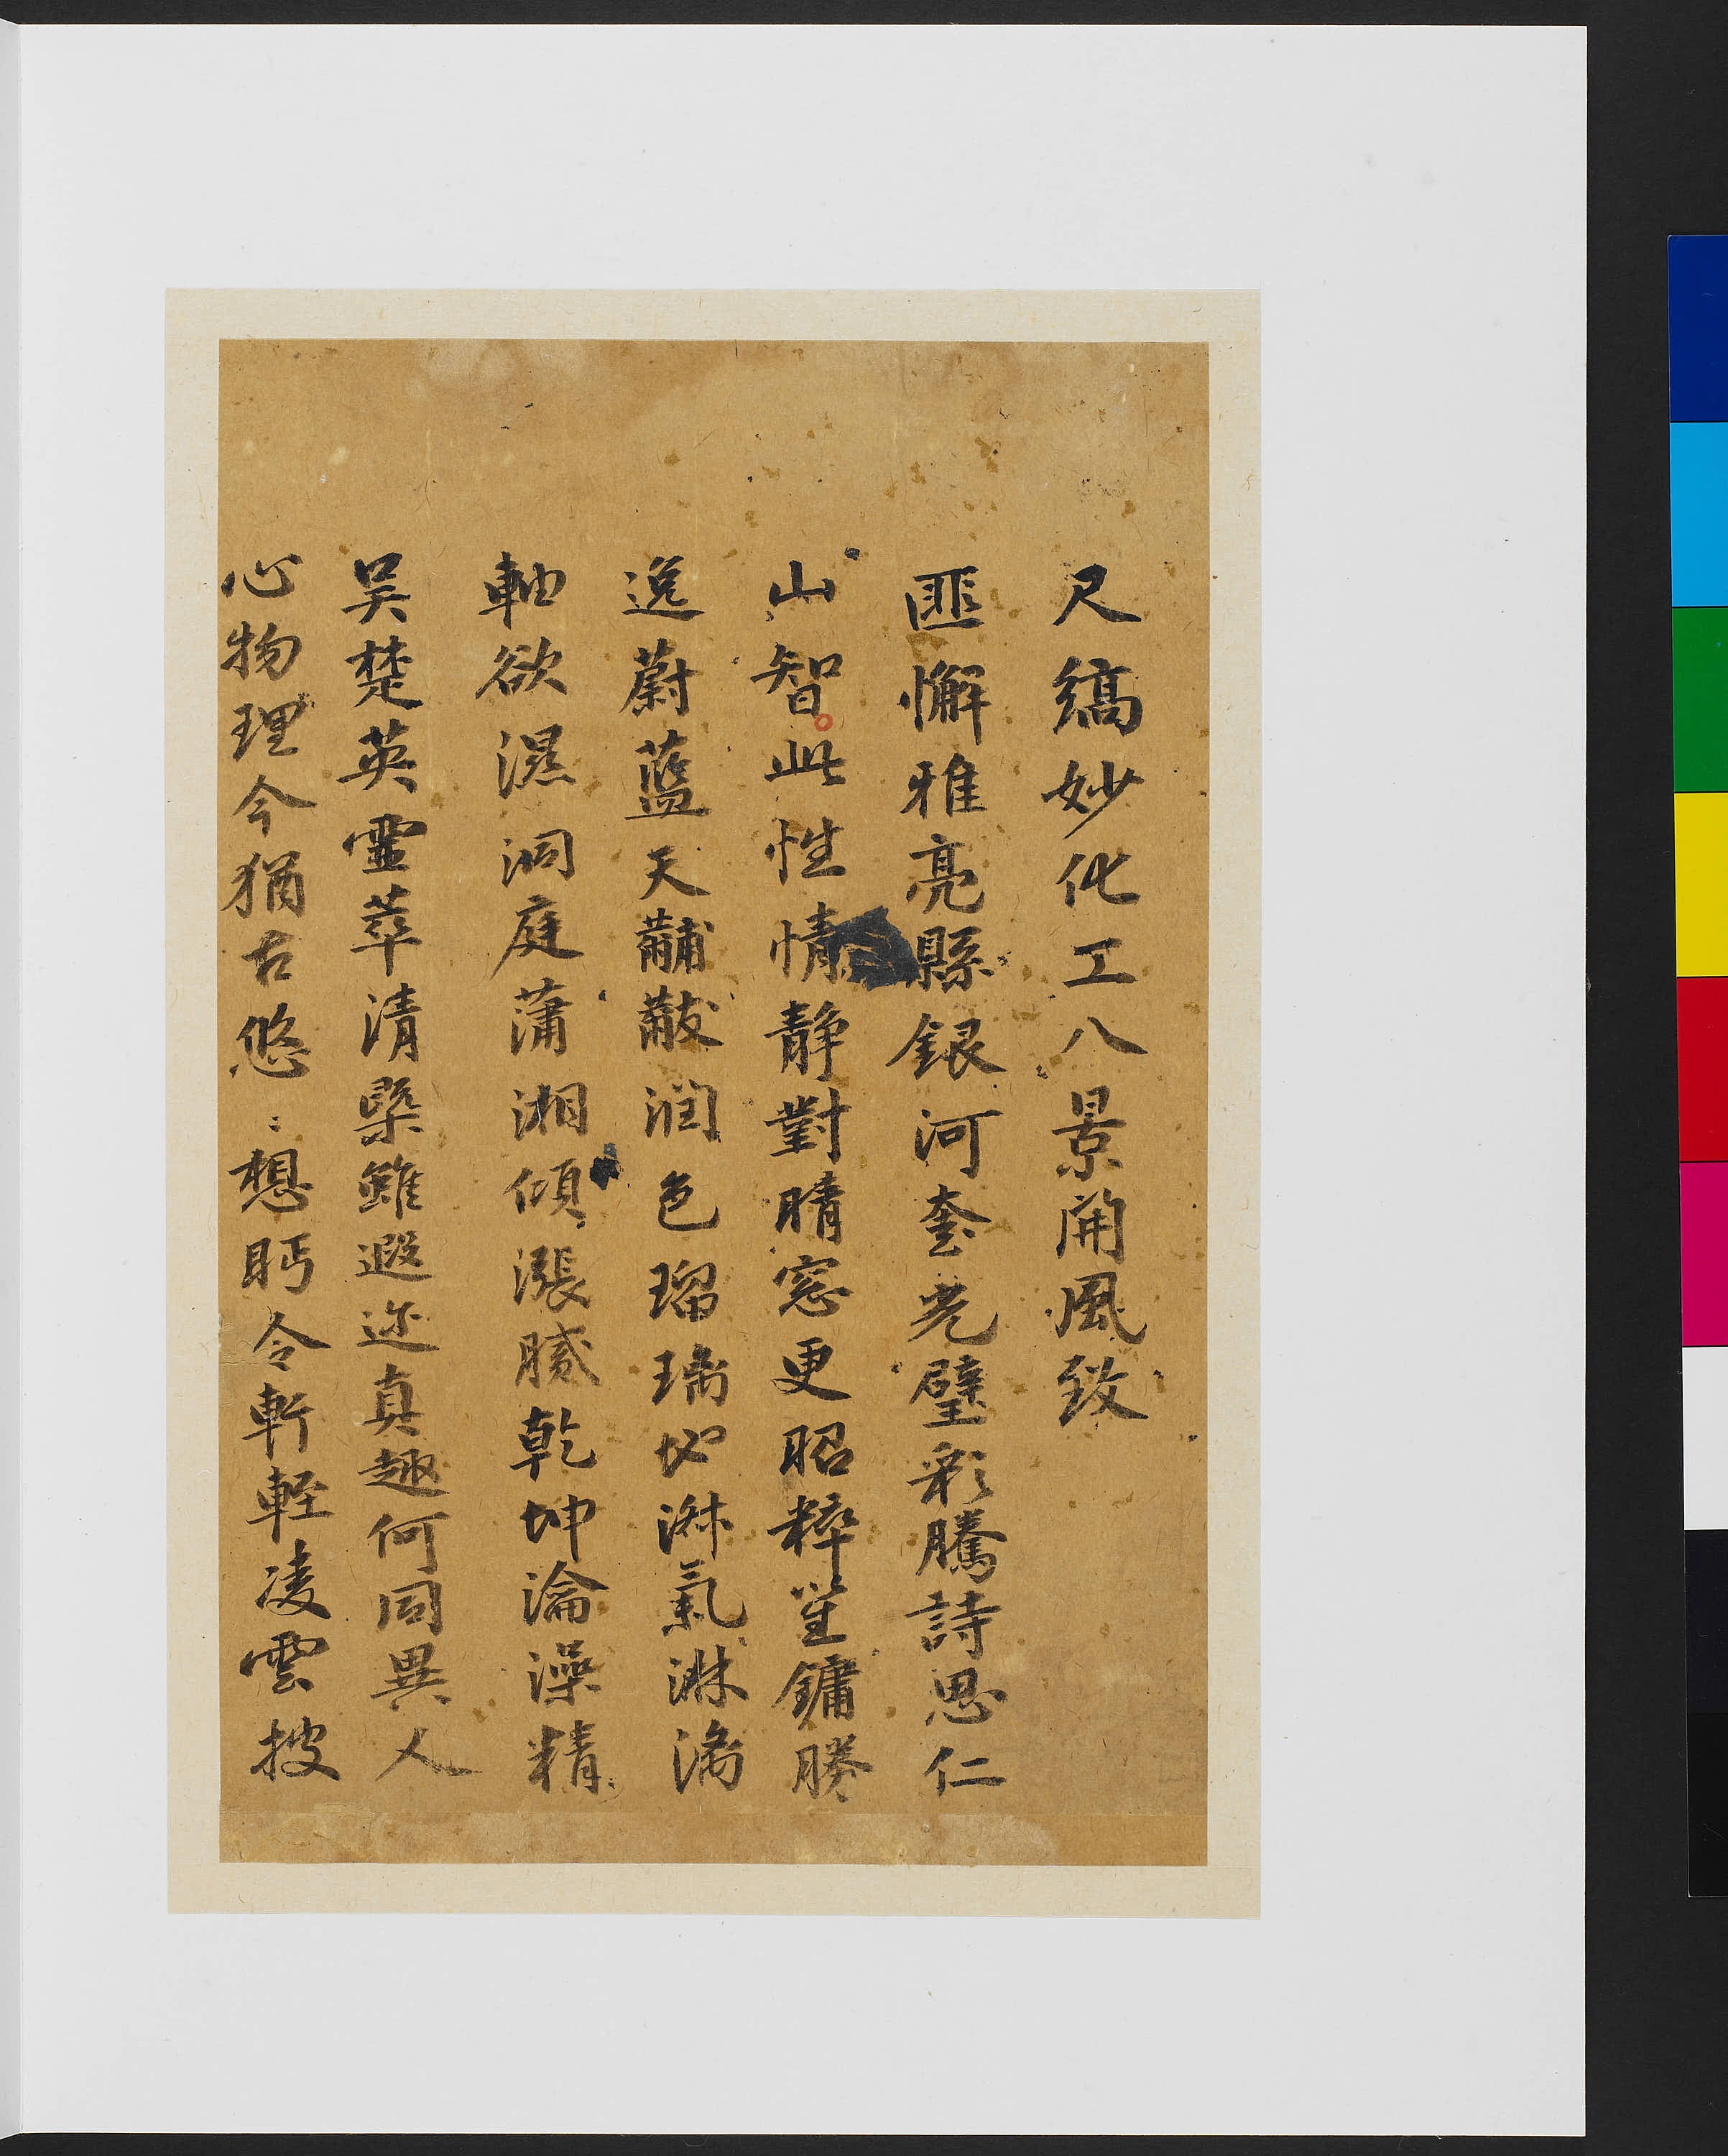 尺縞妙化工八景開風致
匪懈雅亮縣銀河奎光璧彩騰詩思仁
山智此性情静對晴窓更昭粹笙鏞勝
逸蔚藍天黼黻润色瑠璃地淋氣淋漓
軸欲濕洞庭蒲湘傾漲膩乾坤淪澡精
吴楚英靈萃清槩雖遐迩真趣何同異人
心物理今猶古悠〻想眄令軒輊凌雲披